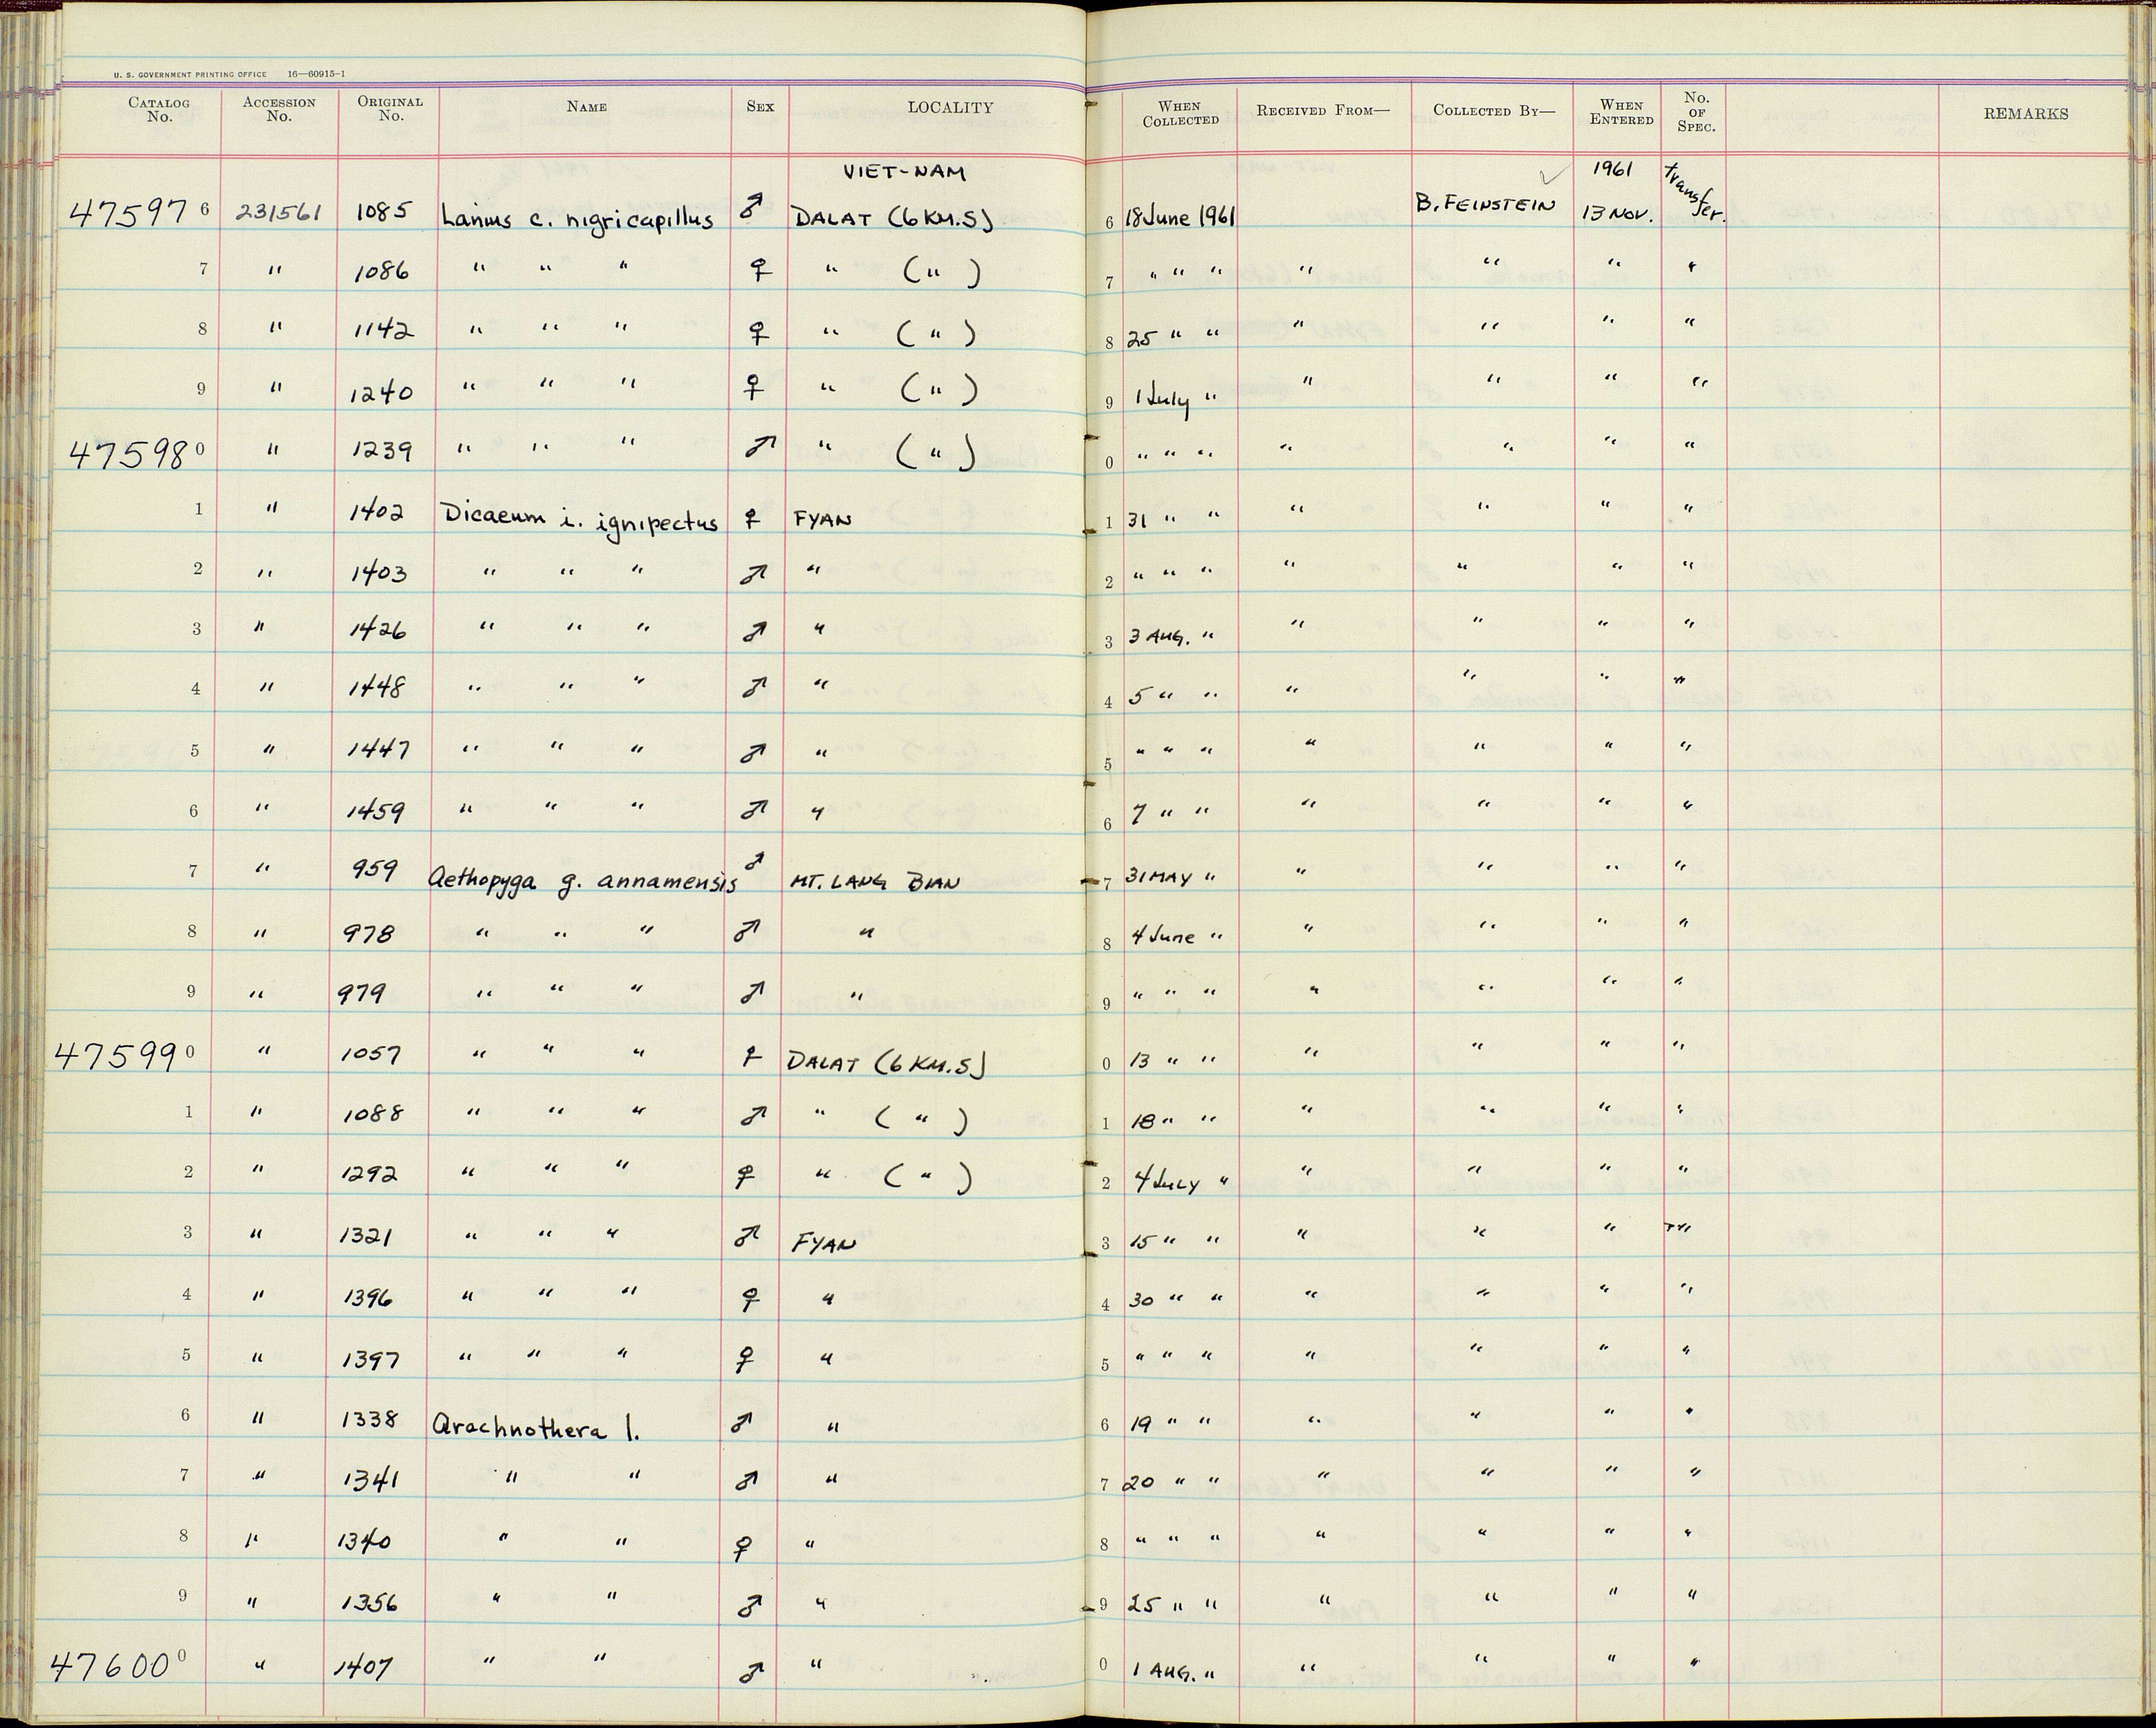 U. S. GOVERNMENT PRINTING OFFICE 16—60915-1
CATALOG No. ACCESSION No. ORIGINAL No. NAME SEX LOCALITY WHEN COLLECTED RECEIVED FROM— COLLECTED BY— WHEN ENTERED No. OF SPEC. REMARKS
VIET-NAM ✓ 1961
47597 6 231561 1085 Lanius c. nigricapillus ♂ DALAT (6 KM.S) 6 18 June 1961 B. FEINSTEIN 13 NOV. Transfer.
7 " 1086 " " " ♀ " ( " ) 7 " " " " " " "
8 " 1142 " " " ♀ " ( " ) 8 25 " " " " " "
9 " 1240 " " " ♀ " ( " ) 9 1 July " " " " "
47598 0 " 1239 " " " ♂ " ( " ) 0 " " " " " " "
1 " 1402 Dicaeum i. ignipectus ♀ FYAN 1 31 " " " " " "
2 " 1403 " " " ♂ " 2 " " " " " " "
3 " 1426 " " " ♂ " 3 3 AUG. " " " " "
4 " 1448 " " " ♂ " 4 5 " " " " " "
5 " 1447 " " " ♂ " 5 " " " " " " "
6 " 1459 " " " ♂ " 6 7 " " " " " "
7 " 959 Aethopyga g. annamensis ♂ MT. LANG BIAN 7 31 MAY " " " " "
8 " 978 " " " ♂ " 8 4 June " " " " "
9 " 979 " " " ♂ " 9 " " " " " " "
47599 0 " 1057 " " " ♀ DALAT (6 KM.S) 0 13 " " " " " "
1 " 1088 " " " ♂ " ( " ) 1 18 " " " " " "
2 " 1292 " " " ♀ " ( " ) 2 4 July " " " " "
3 " 1321 " " " ♂ FYAN 3 15 " " " " " "
4 " 1396 " " " ♀ " 4 30 " " " " " "
5 " 1397 " " " ♀ " 5 " " " " " " "
6 " 1338 Arachnothera l. ♂ " 6 19 " " " " " "
7 " 1341 " " ♂ " 7 20 " " " " " "
8 " 1340 " " ♀ " 8 " " " " " " "
9 " 1356 " " ♂ " 9 25 " " " " " "
47600 0 " 1407 " " ♂ " 0 1 AUG. " " " " "